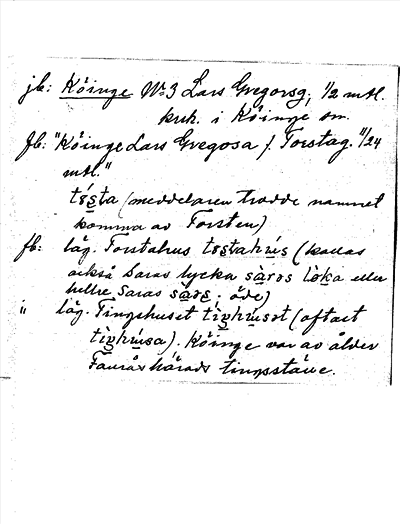 jb: Köinge No 3 Lars Gregorsg, 1/2 mtl.
krk. i Köinge sn.
fb: "Köinge Lars Gregosa / Torstag." 11/24
mtl."
tósta (meddelaren trodde namnet
komma av Torsten)
fb: läg. Torstahus tostahús (kallas
också Saras lycka sàras lỳka eller
hellre Saras sàras; öde)
" läg. Tingshuset tìŋhúsət (oftast
tìŋhúsa). Köinge var av ålder
Faurås härads tingsställe.